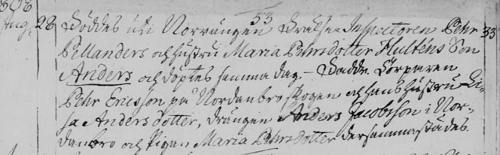 1808
Aug. 28 Föddes uti Norrängen 53 Gräfse Inspectoren Pehr 33
Pellanders och hustru Maria Pehrsdotter Hulténs Son
Anders och döptes samma dag. Fadd. Torparen
Pehr Ericsson på Nordanbro skogen och hans hustru Li-
sae Anders dotter, drängen Anders Jacobsson i Nor-
danbro och Pigan Maria Pehrsdotter dersammastädes.